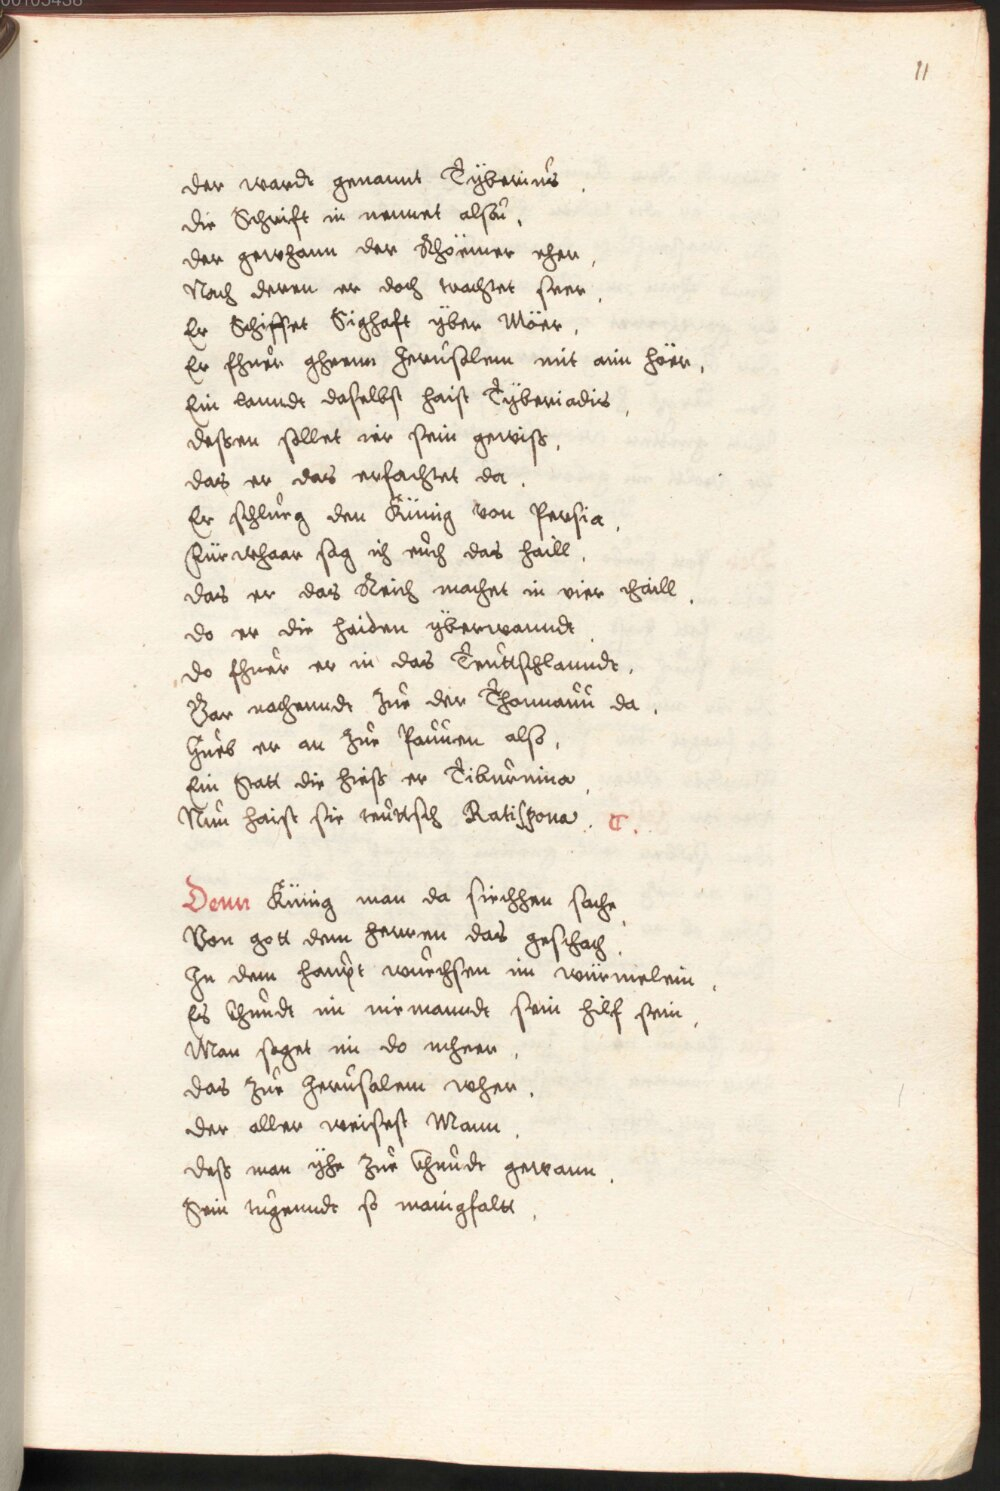 00103438
11
der wardt genannt Tÿberiüs.
die Schrift in nennet alsoü,
der gewhann der Rhöemer eher,
Nach deren er doch trachtet seer,
Er Schiffet Sighaft ÿber Möer,
Er fhuer gheenn Jerusslem mit aim höer,
Ein lanndt daselbst haist Tÿberiadis,
dessen sollet ier sein gewiss,
das er das erfachtet da,
Er schlueg den Künig von Persia,
Fürwhaar sag ich euch das haill,
das er das Reich machet in vier thaill,
do er die haiden ÿberwanndt,
do fhuer er in das Teuttschlanndt,
Gar nachenndt zue der Thonnauu da,
Hueb er an zue Pauuen also,
Ein Statt die hiess er Tiburnina,
Nun haist sie teuttsch Ratispona. C.
Denn Künig man da siechhen sache,
Von gott dem herren das geschach,
In dem haupt wuechsen im würmelein,
Es khundt im niemanndt sein hilf sein,
Man saget im do meer,
das zue Jerusalem wher,
der aller weisest Mann,
dess man ÿhe zue khundt gewann,
Sein tugenndt so manigfaltt,